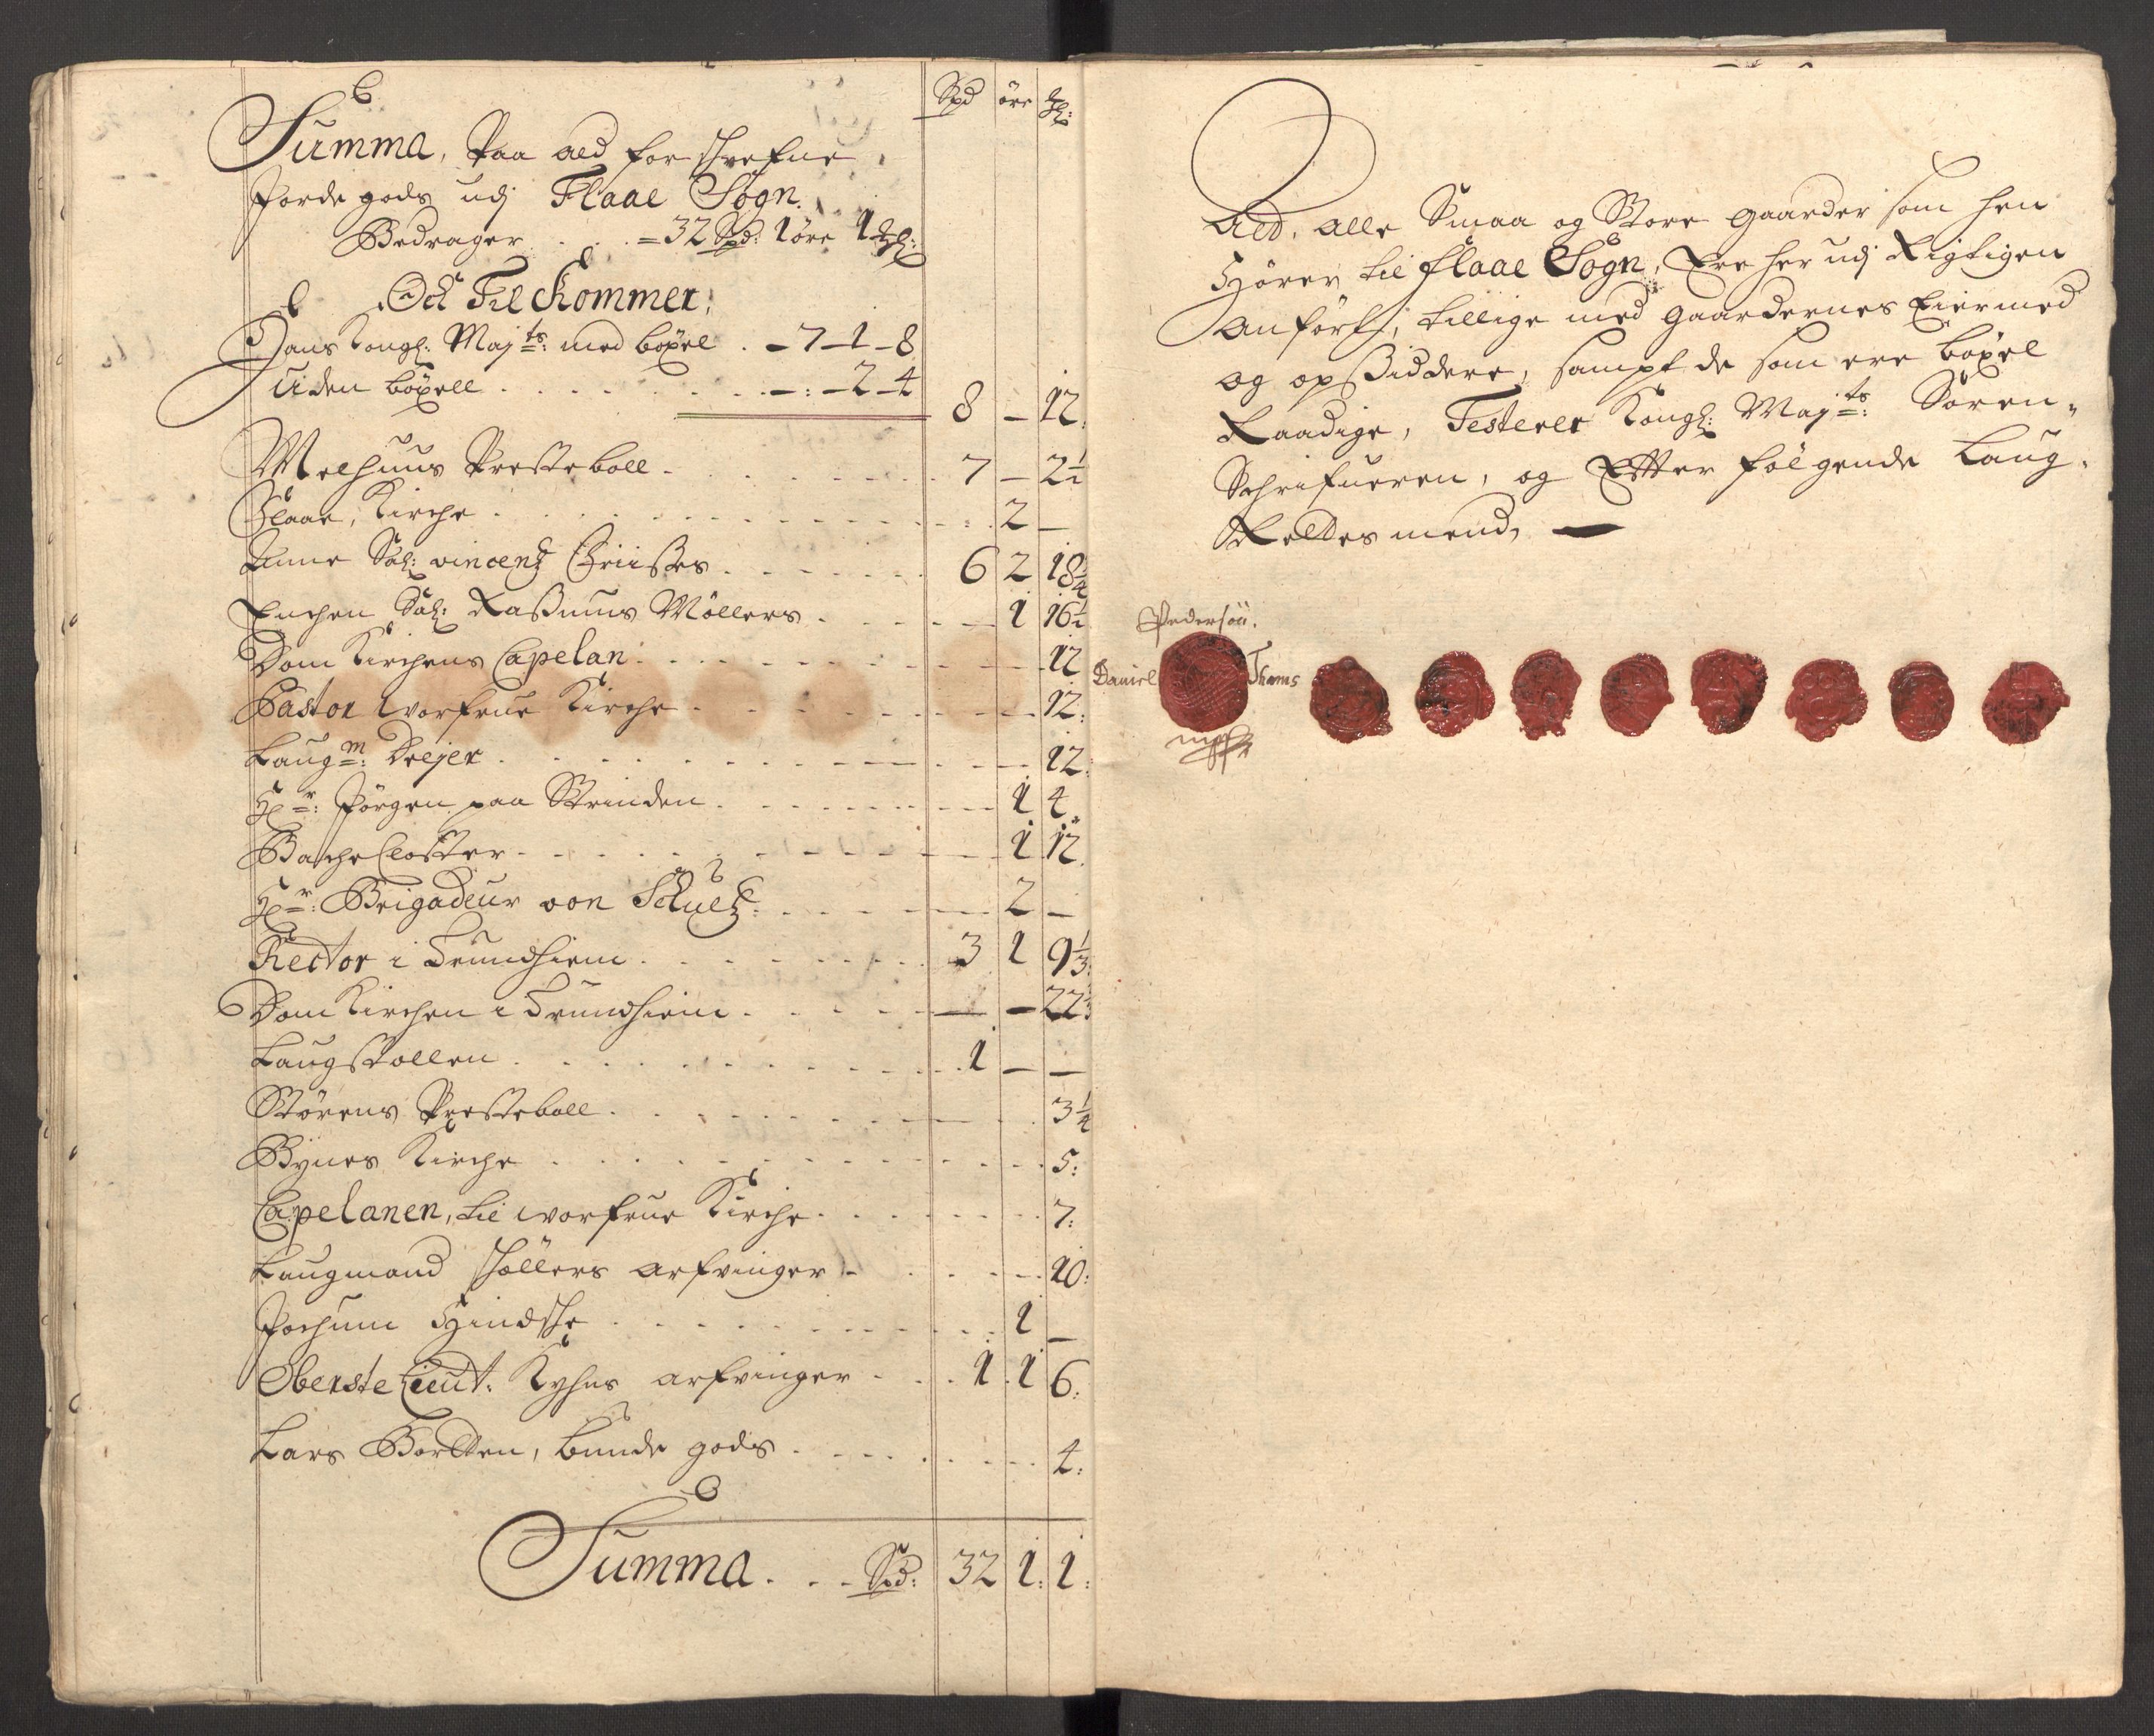 Spd øre mkl:
Summa, Paa ald for schrefne
Jorde gods udj Flaae Sogn.
Bedrager . . . = 32 Spd: 1 øre 1 mkl:
Och Til Kommer,
Hans Kongl: Majts: med bøxel . - 7 - 1 - 8
Uden bøxell . . . . . - : - 2 - 4
8 - 12.
Melhuus Presteboll . . . . 7 - 2½
Flaae, Kirche . . . . 2 -
Anne Sal: vincentz Griisses . . . . 6 2 18¾
Enchen Sal: Rasmus Møllers . . . . 1 16½
Dom Kirchens Capelan . . . . 12
Pastor worfrue Kirche . . . . 12:
Laugm: Dreyer . . . . 12:
Hr: Jørgen paa Strinden . . . . 1 4.
Bache Closter . . . . 1 12.
Hr: Brigadeur von Schultz . . . . 2 -
Rector i Trundhiem . . . . 3 1 9⅓:
Dom Kirchen i Trundhiem . . . . - - 22
Laugstollen . . . . 1 - -
Størens Presteboll . . . . 3¼
Bynes Kirche . . . . 5:
Capelanen, til worfrue Kirche . . . . 7:
Laugmand Schøllers arfvinger . . . . 20:
Jochum Hindsche . . . . 1 -
Oberste Lieut: Kyhns arfvinger . . . . 1 1 6:
Lars Bortten, bunde gods . . . . 4:
Summa . . . Spd: 32 1: 1:
At, alle Smaa og Store gaarder som hen
Hører til flaae Sogn, Ere her udj Rigtigen
anført, tillige med gaardernes Eiermed
og opsiddere, sampt de som ere bøxel
Raadige, Testerer Kongl: Majts: Soren-
Schrifueren, og Efter følgende Laug-
Rettes mend,
Pedersøn.
Daniel Thams
mpp